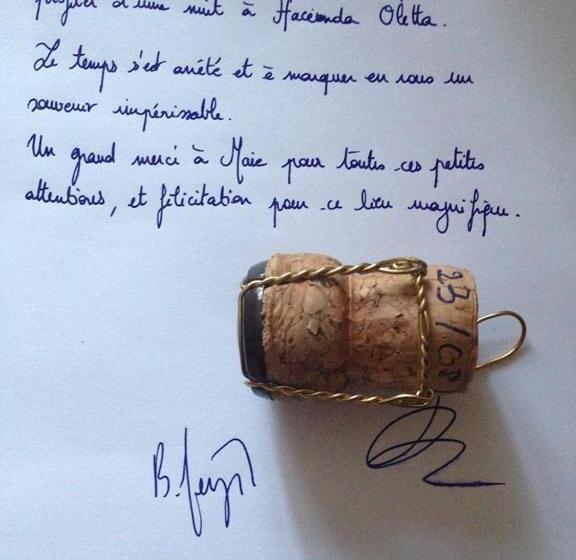 profiter d'une nuit à Hacienda Oletta.
Le temps s'est arrêté et à marquer en nous un
souvenir impérissable.
Un grand merci à Maie pour toutes ces petites
attentions, et félicitation pour ce lieu magnifique.
23/08
B.